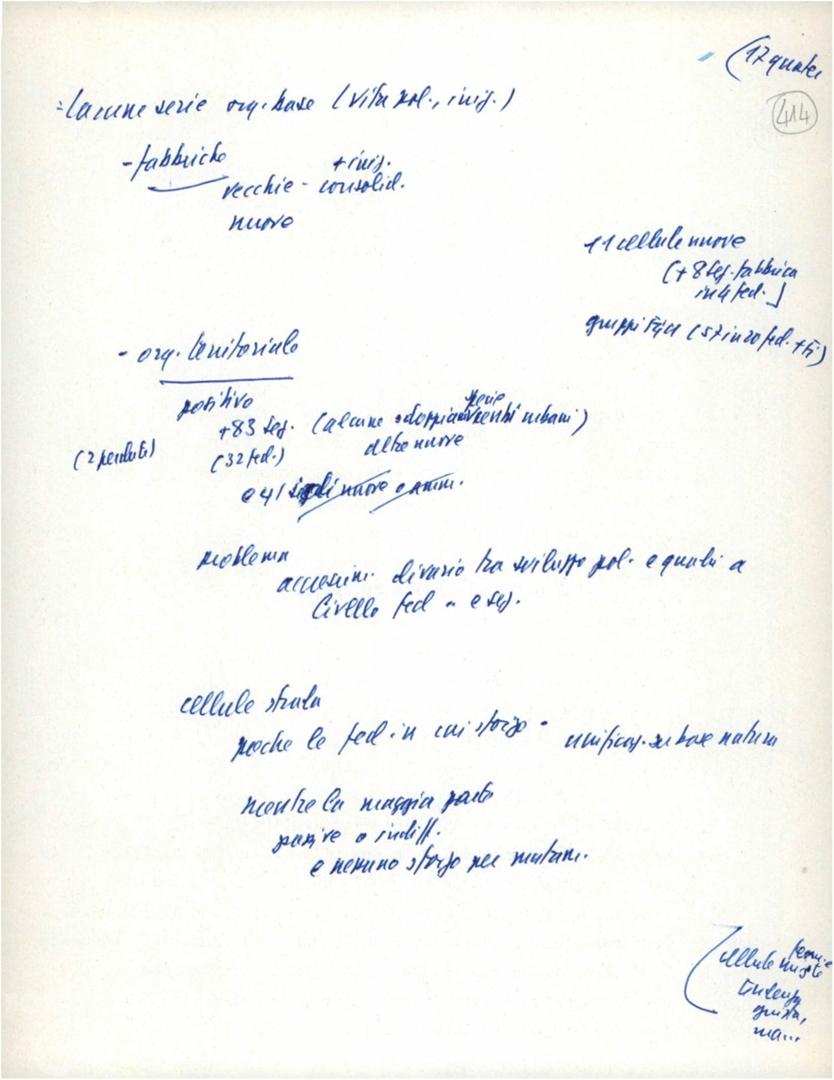 (17 quater
414
= lacune serie org. base (vita pol., iniz.)
- fabbriche
+ iniz.
vecchie - consolid.
nuove
11 cellule nuove
(+ 8 sez. fabbrica
in 4 fed.)
gruppi (57 in 20 fed. + Fi)
- org. territoriale
positivo
+83 sez. (alcune sdoppiam. specie centri urbani)
(2 perdute)
(32 fed.)
altre nuove
e 41 nuove o amm.
problema
accession. divario tra sviluppo pol. e quadri a
livello fed. e sez.
cellule strada
poche le fed. in cui sforzo -
unificaz. su base natura
mentre la maggia parte
passive o indiff.
e nessuno sforzo per mutam.
cellule femm. e
miste
tendenza
giusta,
ma...